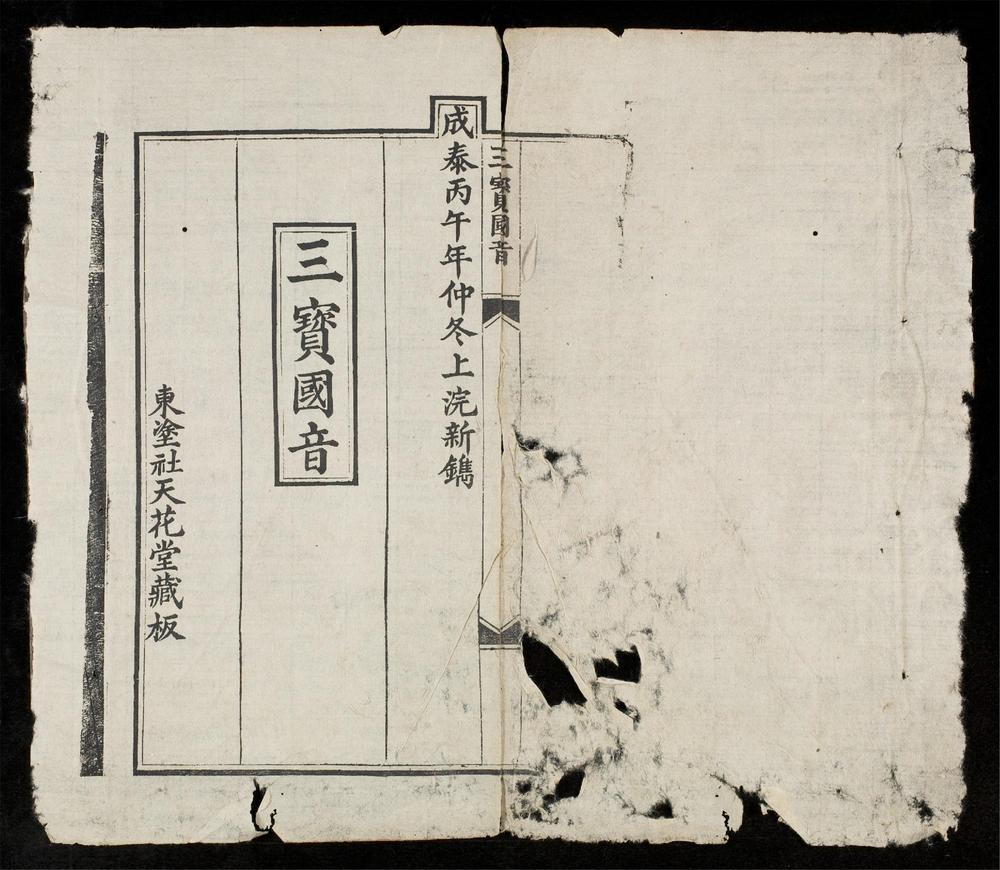 三寳國音
成泰丙午年仲冬上浣新鐫
三寳國音
東塗社天花堂藏板